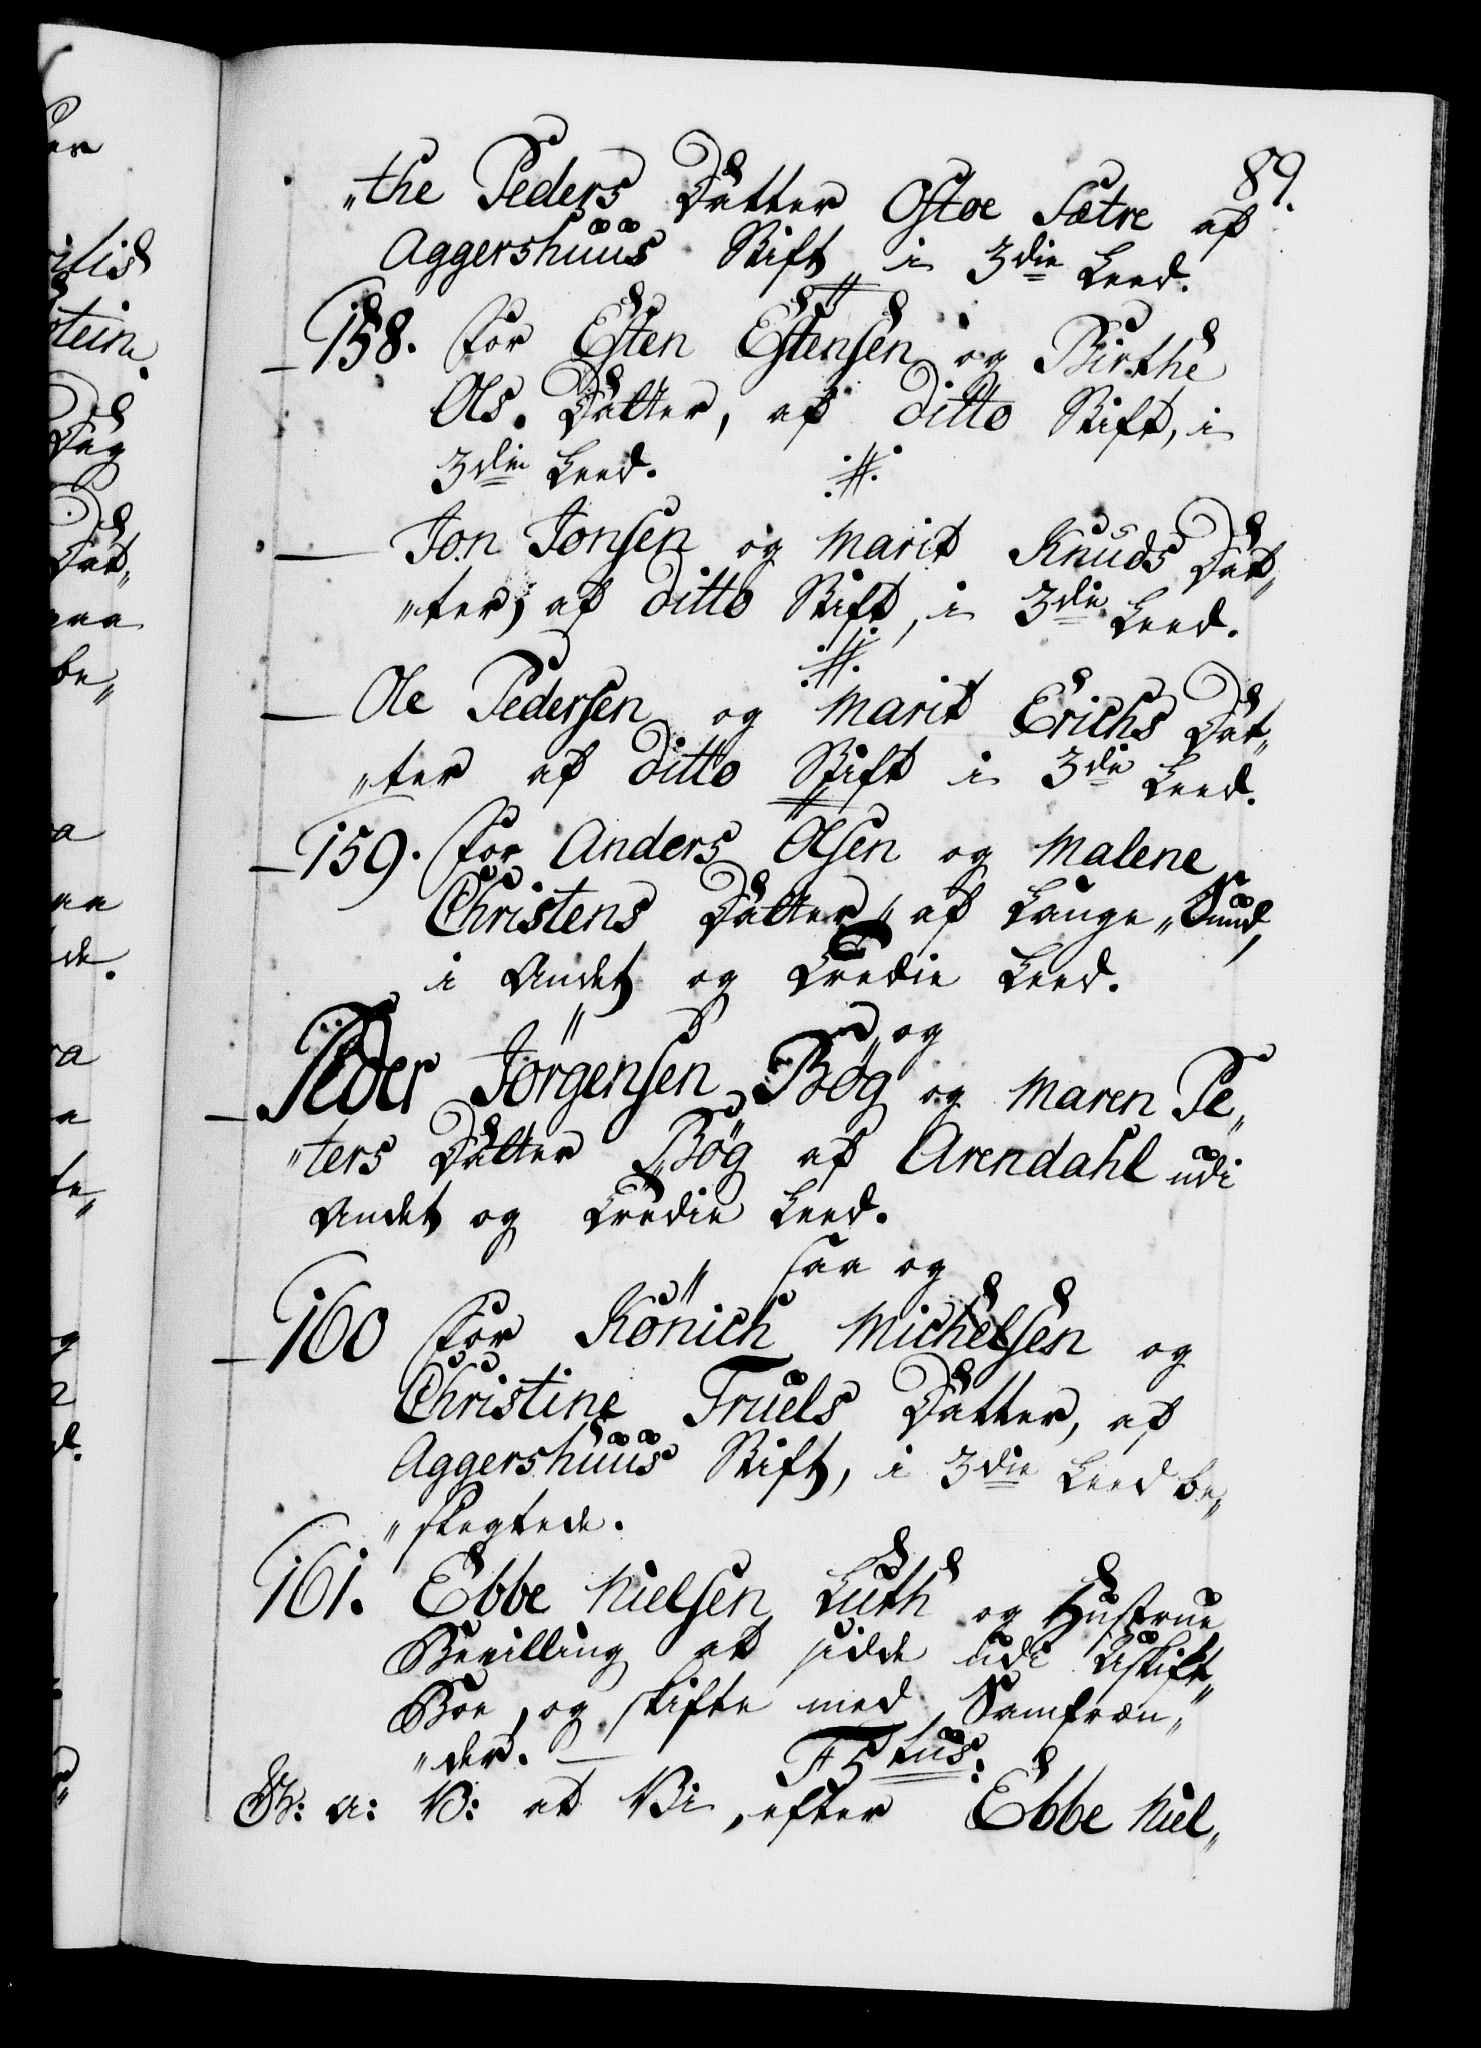 89.
"the Peders Datter Ostoe Sætre af
Aggershuus Stift, i 3die Leed.
158. For Esten Estensen og Birthe
Ols. Datter, af ditto Stift, i
3die Leed.
Jon Jonsen og Marit Knuds Dat"
"ter, af ditto Stift, i 3die Leed.
Ole Pedersen og Marit Erichs Dat"
"ter af ditto Stift i 3die Leed.
159. For Anders Olsen og Malene
Christens Datter, af Lange"Sund,
i Andet og Tredie Leed.
" og
Peder Jörgensen Bög og Maren Pe"
"ters Datter Bög af Arendahl udi
Andet og Tredie Leed.
" saa og
160 For Könich Michelsen og
Christine Truels Datter, af
Aggershuus Stift, i 3die Leed be"
"slegtede.
161. Ebbe Nielsen Luth og Hustrue
Bevilling at sidde udi Uskift"
Boe, og skifte med Samfræn"
"der. — F5tus:
G: a: V: at Vi, efter Ebbe Niel"
ritis
stein
Dag
Dat"
paa
be"
de.
te"